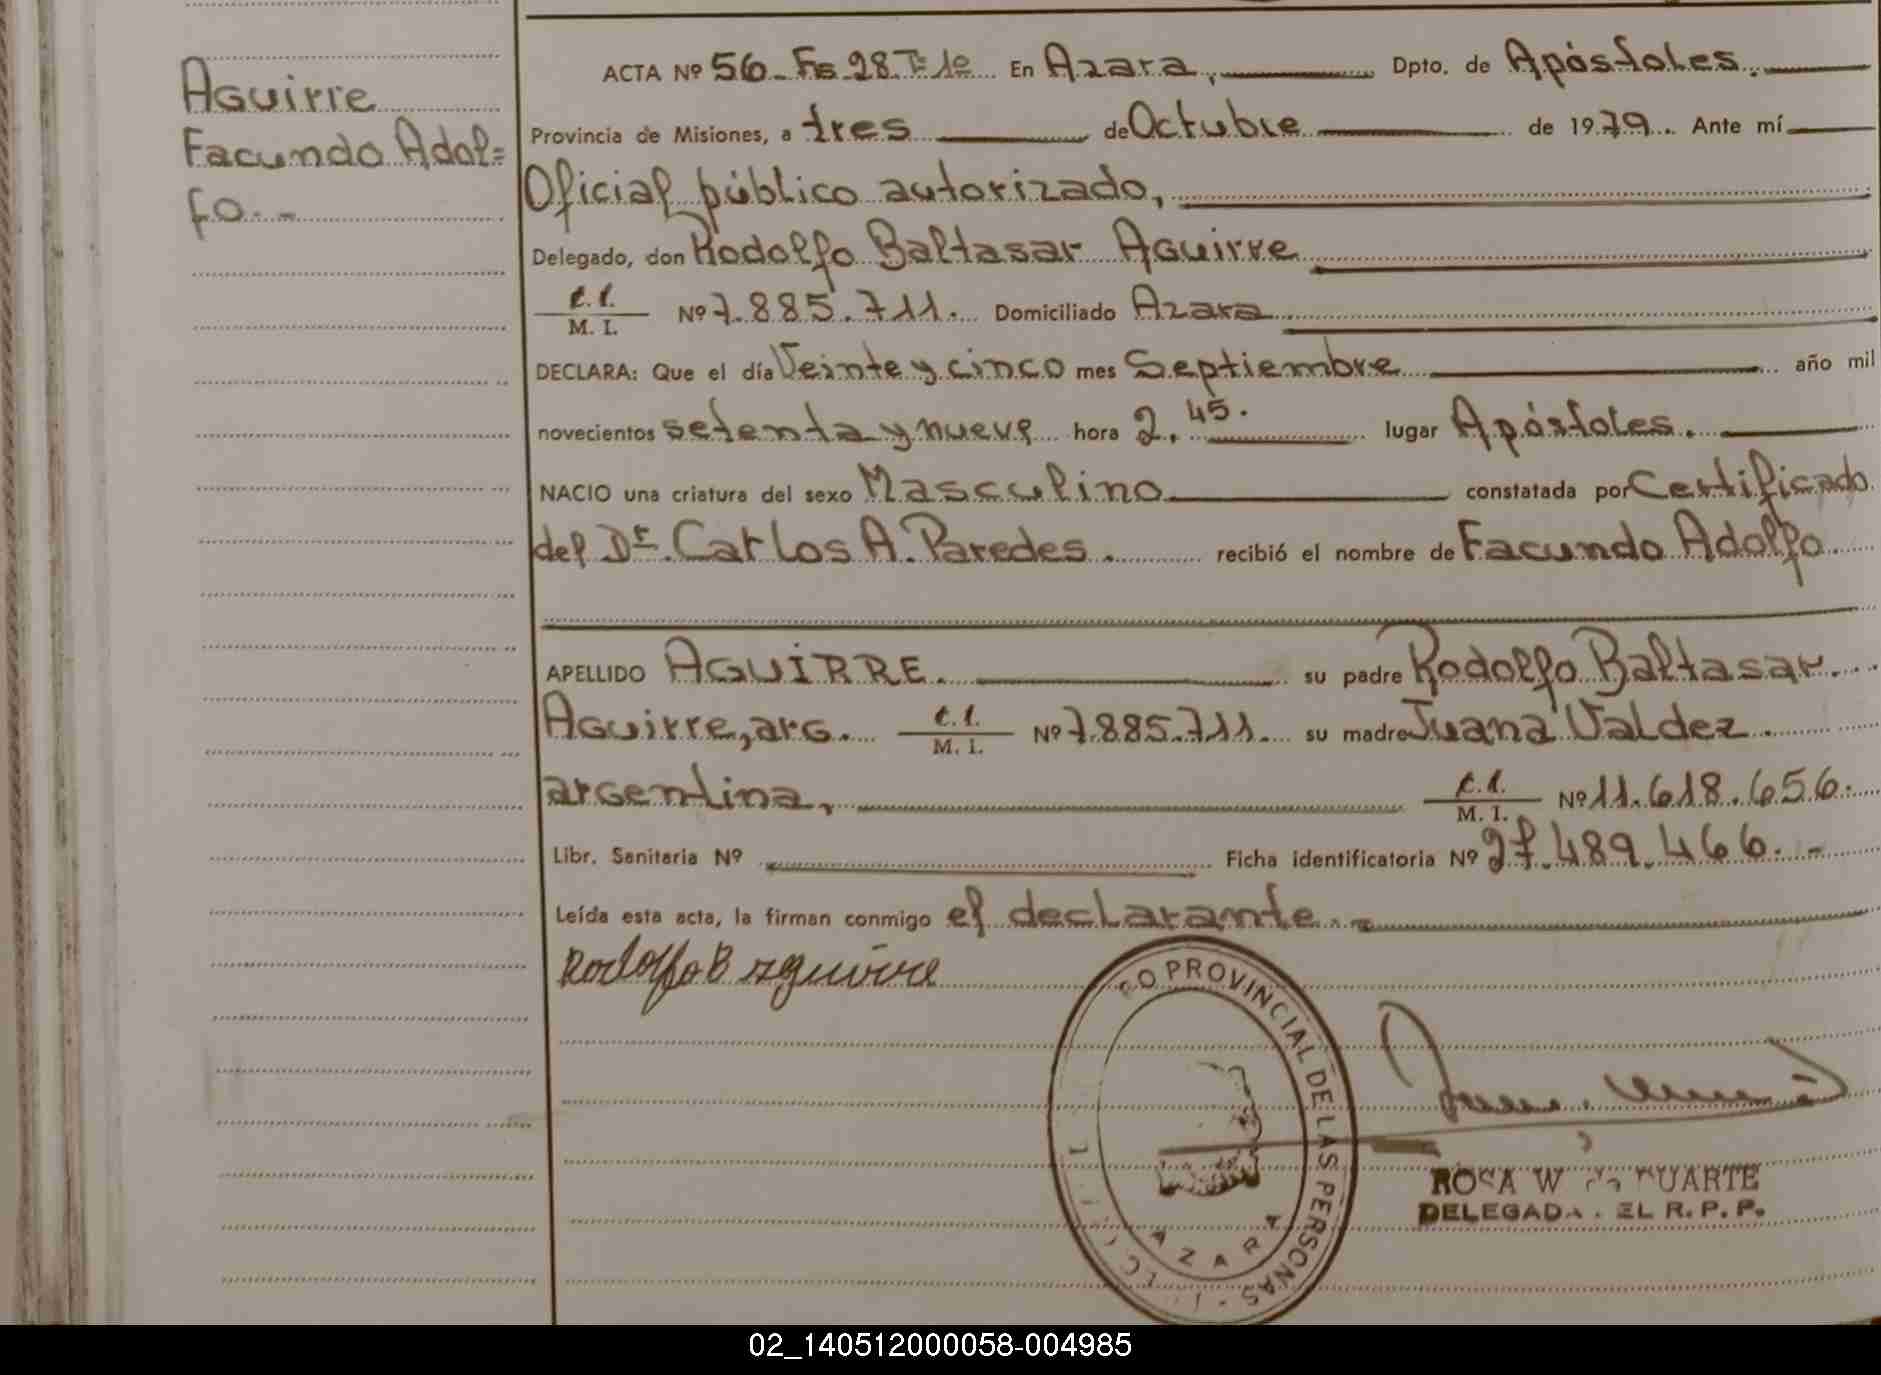 Aguirre
Facundo Adol=
fo.-
ACTA Nº 56 Fs 28 Tº 1º En Azara, Dpto. de Apóstoles.
Provincia de Misiones, a tres de Octubre de 1979. Ante mí
Oficial público autorizado,
Delegado, don Rodolfo Baltasar Aguirre
C.I.
M. I. Nº 7.885.711. Domiciliado Azara
DECLARA: Que el día Veinte y cinco mes Septiembre año mil
novecientos setenta y nueve hora 2,45. lugar Apóstoles.
NACIO una criatura del sexo Masculino constatada por Certificado
del Dr. Carlos A. Paredes. recibió el nombre de Facundo Adolfo
APELLIDO AGUIRRE. su padre Rodolfo Baltasar
Aguirre, arg. C.I. M. I. Nº 7.885.711. su madre Juana Valdez
argentina, C.I. M. I. Nº 11.618.656.
Libr. Sanitaria Nº Ficha identificatoria Nº 27.489.466.-
Leída esta acta, la firman conmigo el declarante.-
Rodolfo B Aguirre
PROVINCIAL DE LAS PERSONAS
AZARA
ROSA W DUARTE
DELEGADA EL R. P. P.
02_140512000058-004985